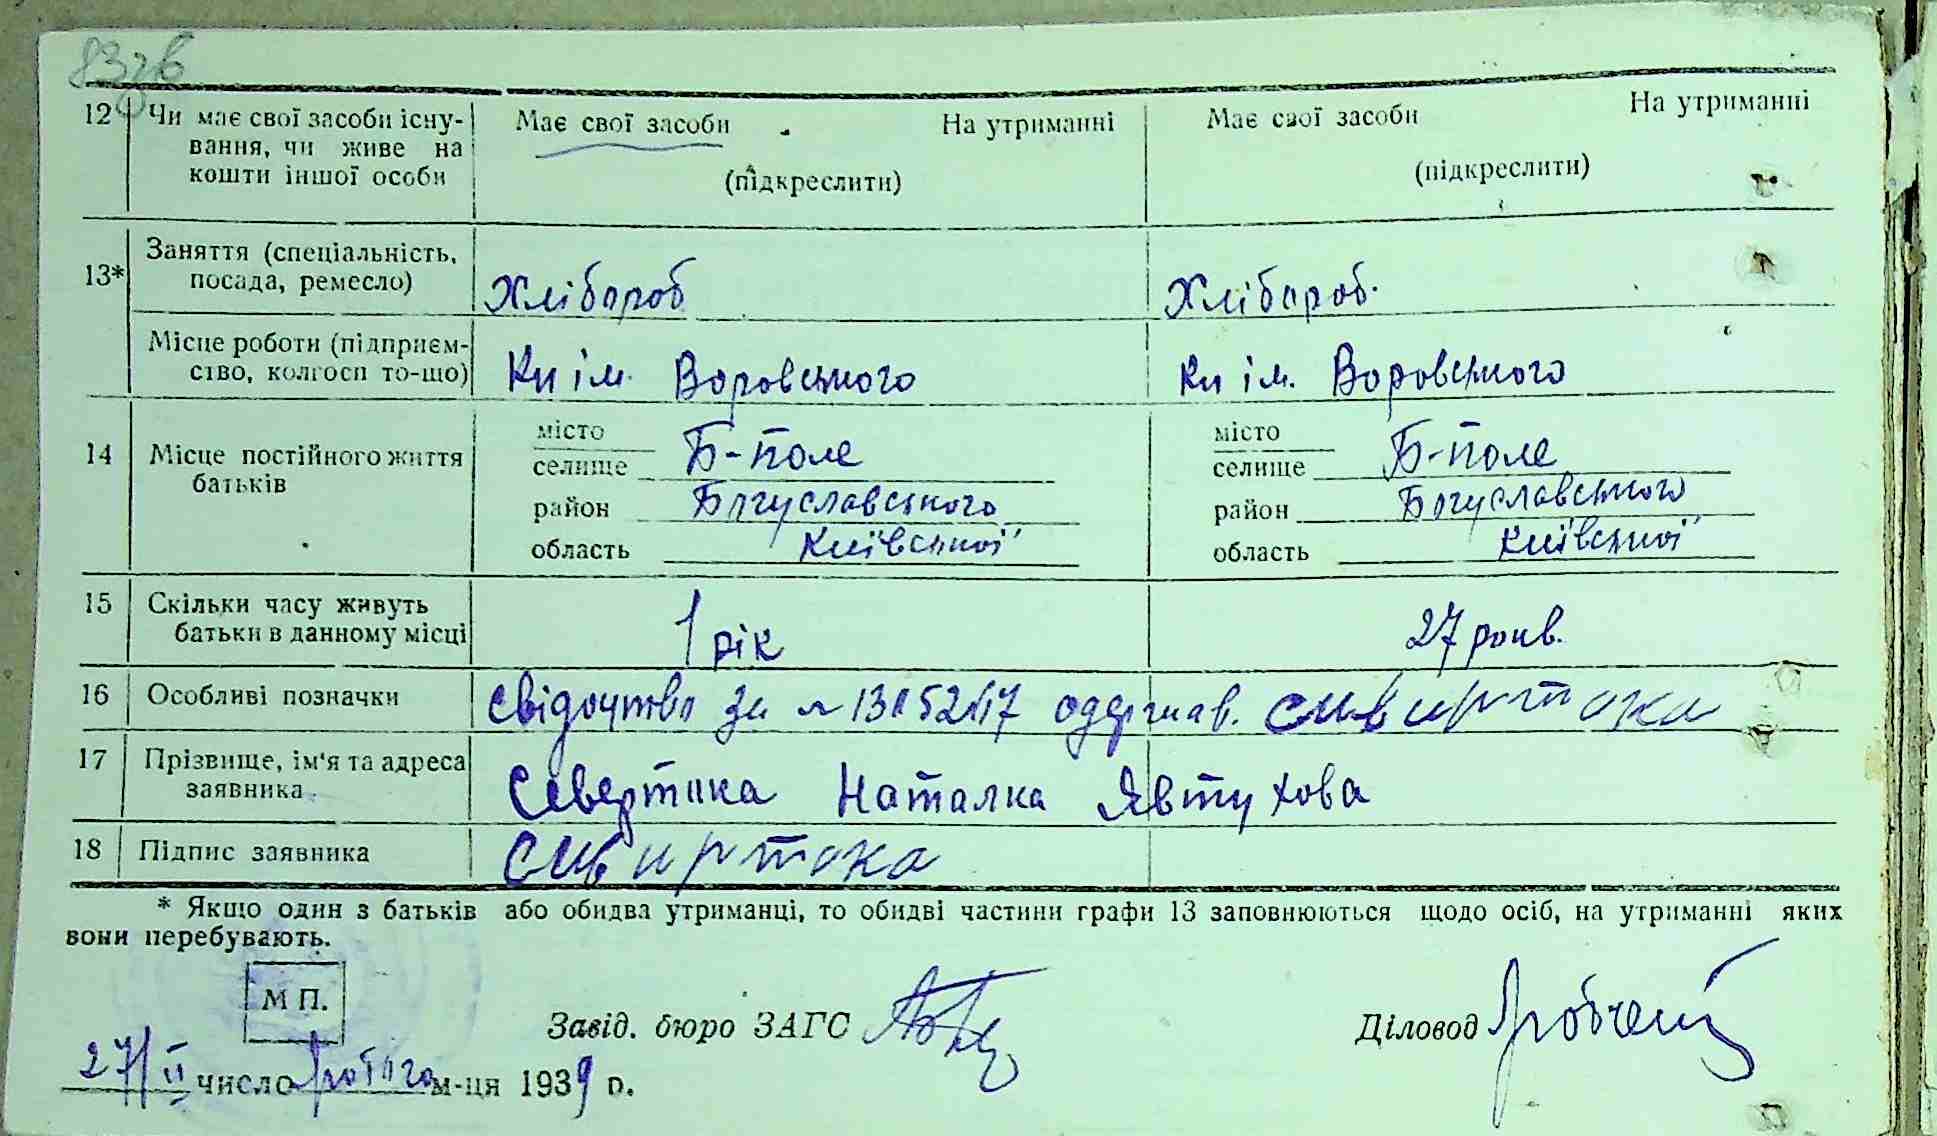 83зв
12 Чи має свої засоби існу- Має свої засоби На утриманні Має свої засоби На утриманні
вання, чи живе на
кошти іншої особи (підкреслити) (підкреслити)
13* Заняття (спеціальність,
посада, ремесло) Хлібороб Хлібороб.
Місце роботи (підприєм-
ство, колгосп то-що) Кп ім. Воровського Кп ім. Воровського
14 Місце постійного життя
батьків
місто місто
селище Б-Поле селище Б-Поле
район Богуславського район Богуславського
область Київської область Київської
15 Скільки часу живуть
батьки в данному місці 1 рік 27 років.
16 Особливі позначки Свідоцтво за № одержав. Сивиртока
17 Прізвище, ім'я та адреса
заявника Сивертака Наталка Явтухова
18 Підпис заявника Сивиртока
* Якщо один з батьків або обидва утриманці, то обидві частини графи 13 заповнюються щодо осіб, на утриманні яких
вони перебувають.
М П.
Завід. бюро ЗАГС Діловод
27/II число лютого м-ця 1939 р.